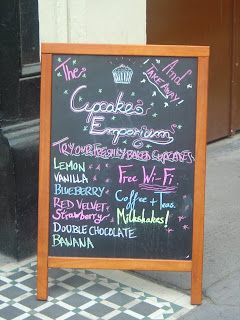 The
And
TAKE AWAY!
Cupcakes
Emporium
TRY OUR FRESHLY BAKED CUPCAKES
LEMON
VANILLA
BLUEBERRY
RED VELVET
Strawberry
DOUBLE CHOCOLATE
BANANA
Free Wi-Fi
Coffee + Teas.
Milkshakes!